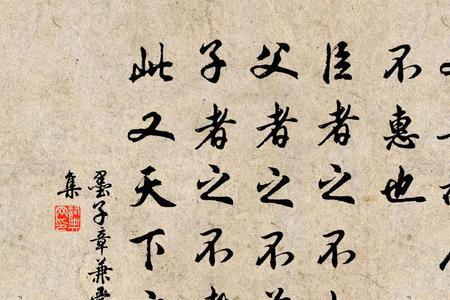 不惠也
臣者之不
父者之不
子者之不
此又天下
墨子章兼愛
集